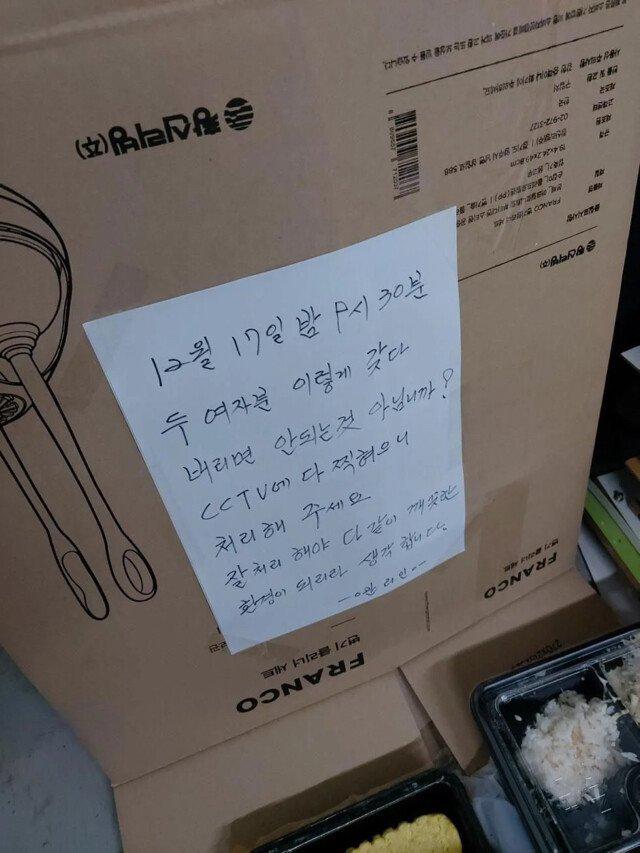 12월 17일 밤 9시 30분
두 여자분 이렇게 갖다
버리면 안되는것 아닙니까?
CCTV에 다 찍혀으니
처리해 주세요
잘처리 해야 다 같이 깨끗한
환경이 되리라 생각 합니다.
-관리인-
창신리빙(주)
창신리빙(주)
02-972-3127
19.4x24.2x49.8cm
FRANCO
변기 클리너 세트
FRANCO
변기 클리너 세트